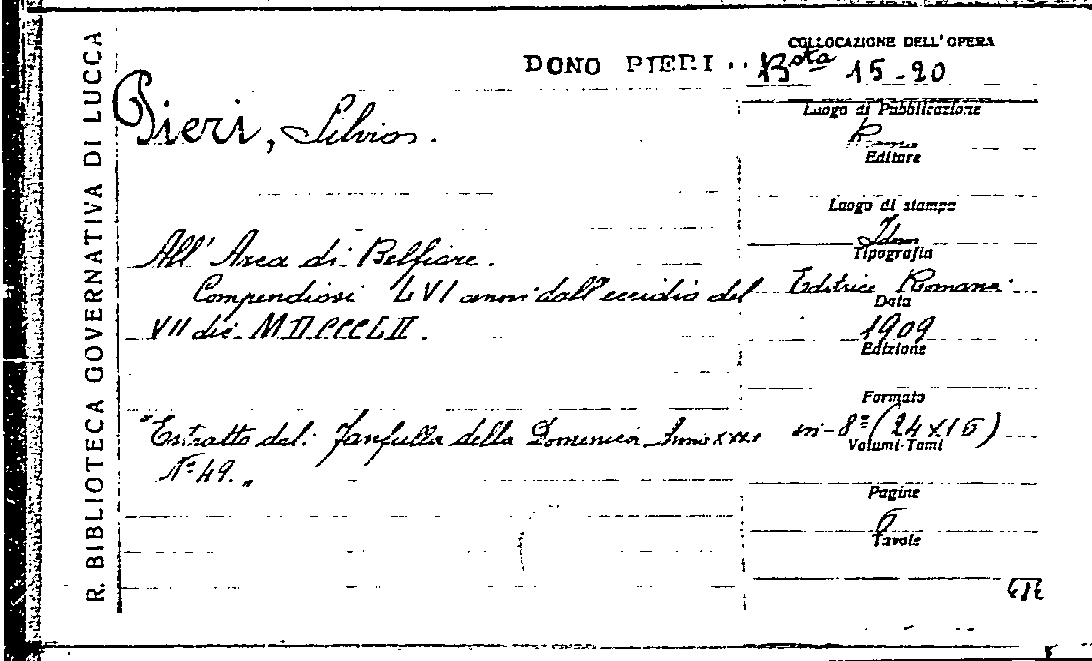 R. BIBLIOTECA GOVERNATIVA DI LUCCA
COLLOCAZIONE DELL'OPERA
DONO PIERI .. Bsta 15-20
Pieri, Silvio.
Luogo di Pubblicazione
Editore
Luogo di stampa
Idem
Tipografia
All' Area di Belfiore.
Compendiosi LVI anni dall'eccidio del
Editrice Romana
Data
VII dic. MDCCCLII.
1909
Edizione
Formato
"Estratto dal: Fanfulla della Domenica Anno xxxi
in-8° (24x16)
Volumi-Tomi
N° 49."
Pagine
6
Tavole